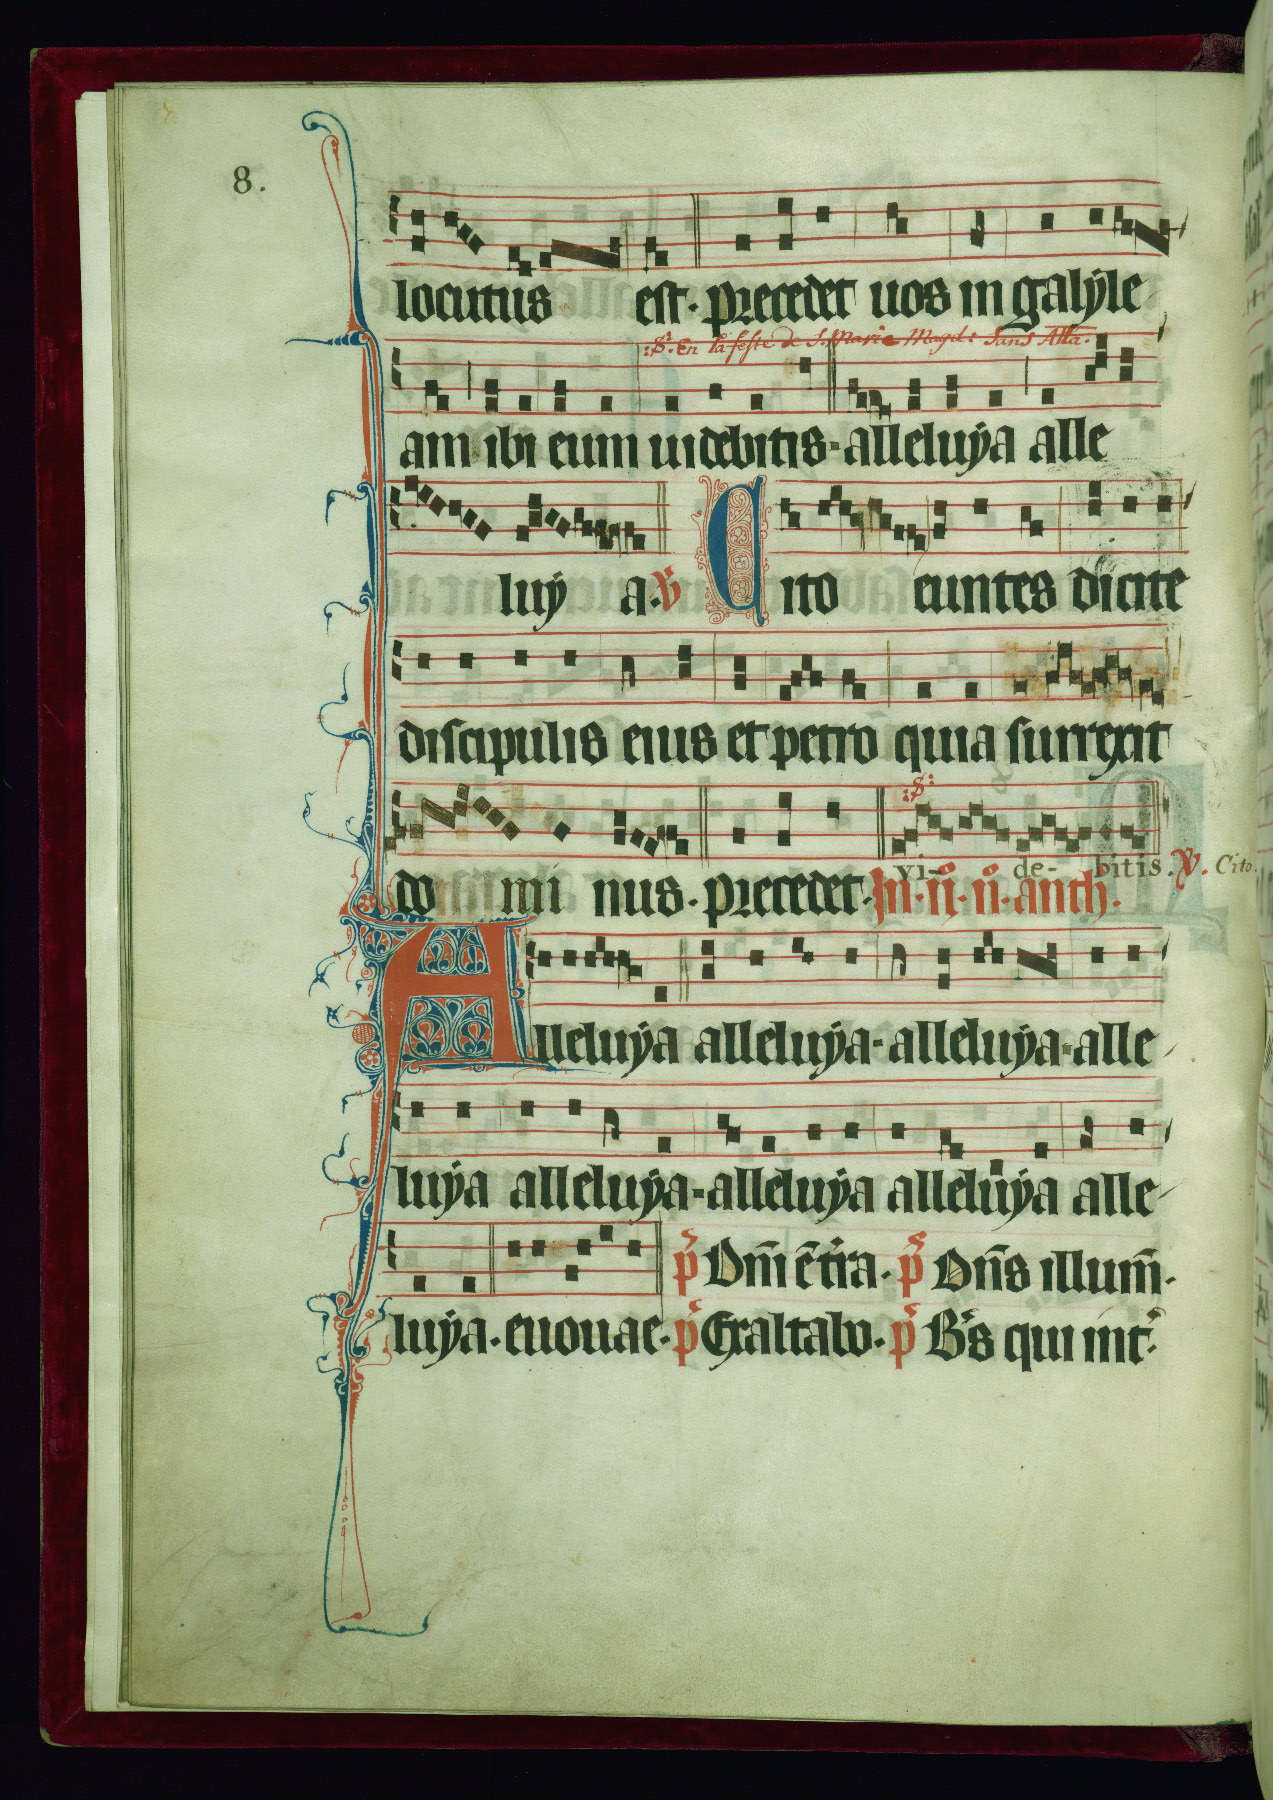 8.
locutus est. precedet uos in galyle
:S: En la feste de S. Marie Magd: Sans Alla.
am ibi eum uidebitis. alleluya alle
luy a. V Cito euntes dicite
discipulis eius et petro quia surrexit
:S:
vi- de- bitis. V. Cito.
do mi nus. precedet. In. ii°. n°. anth.
Alleluya alleluya. alleluya. alle
luya alleluya. alleluya alleluya alle
p̄s Dn̄i ē t̄ra. p̄s Dn̄s illum̄.
luya. euouae. p̄s Exaltabo. p̄s B̄s qui int.